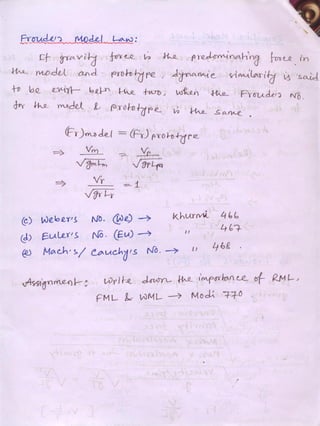 Froude's Model Law:
If gravity force is the predominating force in
the model and prototype, dynamic similarity is said
to be exist betn the two, when the Froude's No.
for the model & prototype is the same.
(Fr)model = (Fr)prototype
⇒ Vm/√gmLm = Vp/√gpLp
⇒ Vr/√grLr = 1
(c) Weber's No. (We) → Khurmi 466
(d) Euler's No. (Eu) → " 467
(e) Mach's/Cauchy's No. → " 468.
Assignment: Write down the importance of RML,
FML & WML → Modi 770